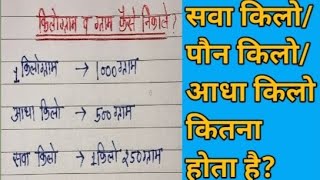 किलोग्राम व ग्राम कैसे निकाले?
1 किलोग्राम → 1000 ग्राम
आधा किलो → 500 ग्राम
सवा किलो → 1 किलो 250 ग्राम
सवा किलो/
पौन किलो/
आधा किलो
कितना
होता है?